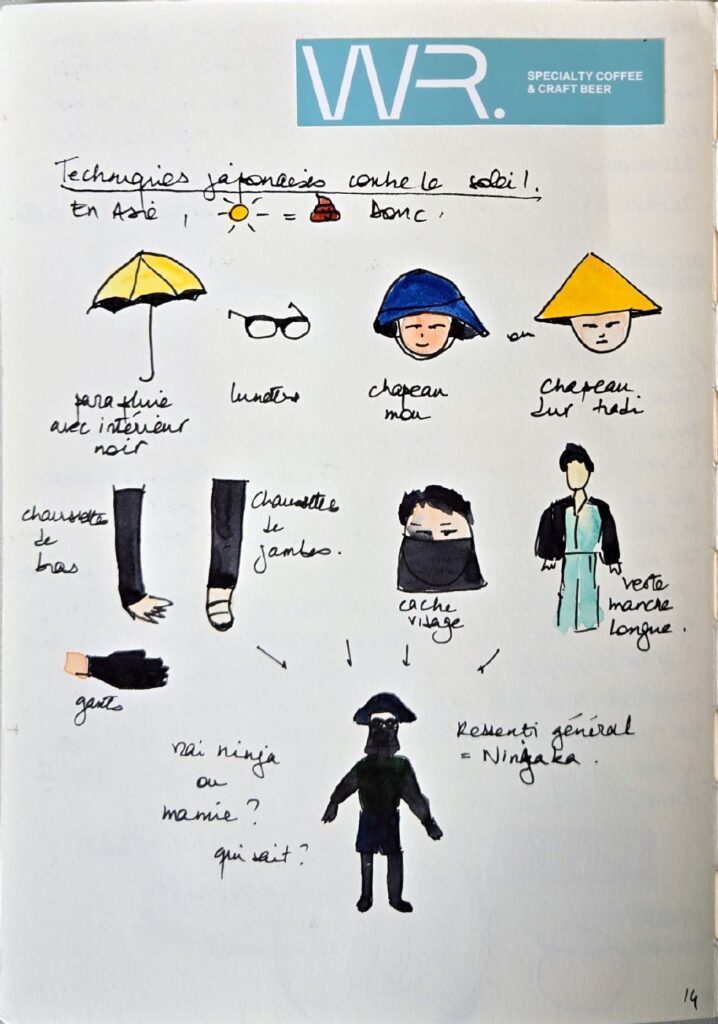 WR.
SPECIALTY COFFEE
& CRAFT BEER
Techniques japonaises contre le soleil.
En Asie, = Donc.
ou
parapluie
avec intérieur
noir
lunettes
chapeau
mou
chapeau
dur tradi
chaussette
de
bras
chaussettes
de
jambes.
cache
visage
veste
manche
longue.
gants
vrai ninja
ou
mamie ?
qui sait ?
Ressenti général
= Ninjaka.
14